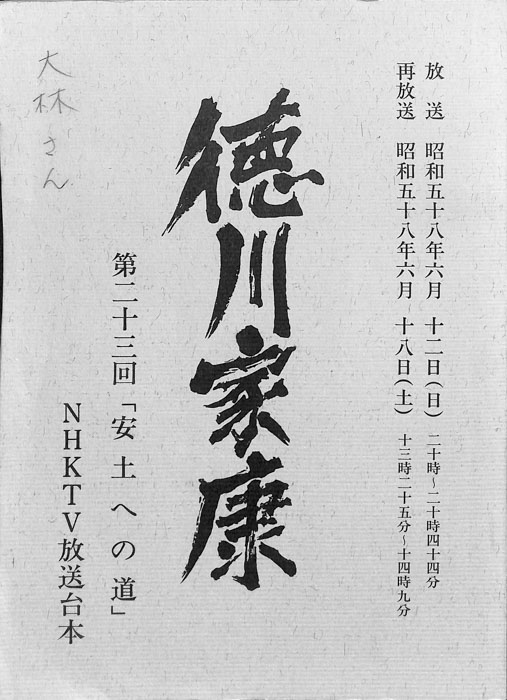 放送 昭和五十八年六月 十二日(日) 二十時～二十時四十四分
再放送 昭和五十八年六月 十八日(土) 十三時二十五分～十四時九分
徳川家康
第二十三回「安土への道」
NHKTV放送台本
大林さん